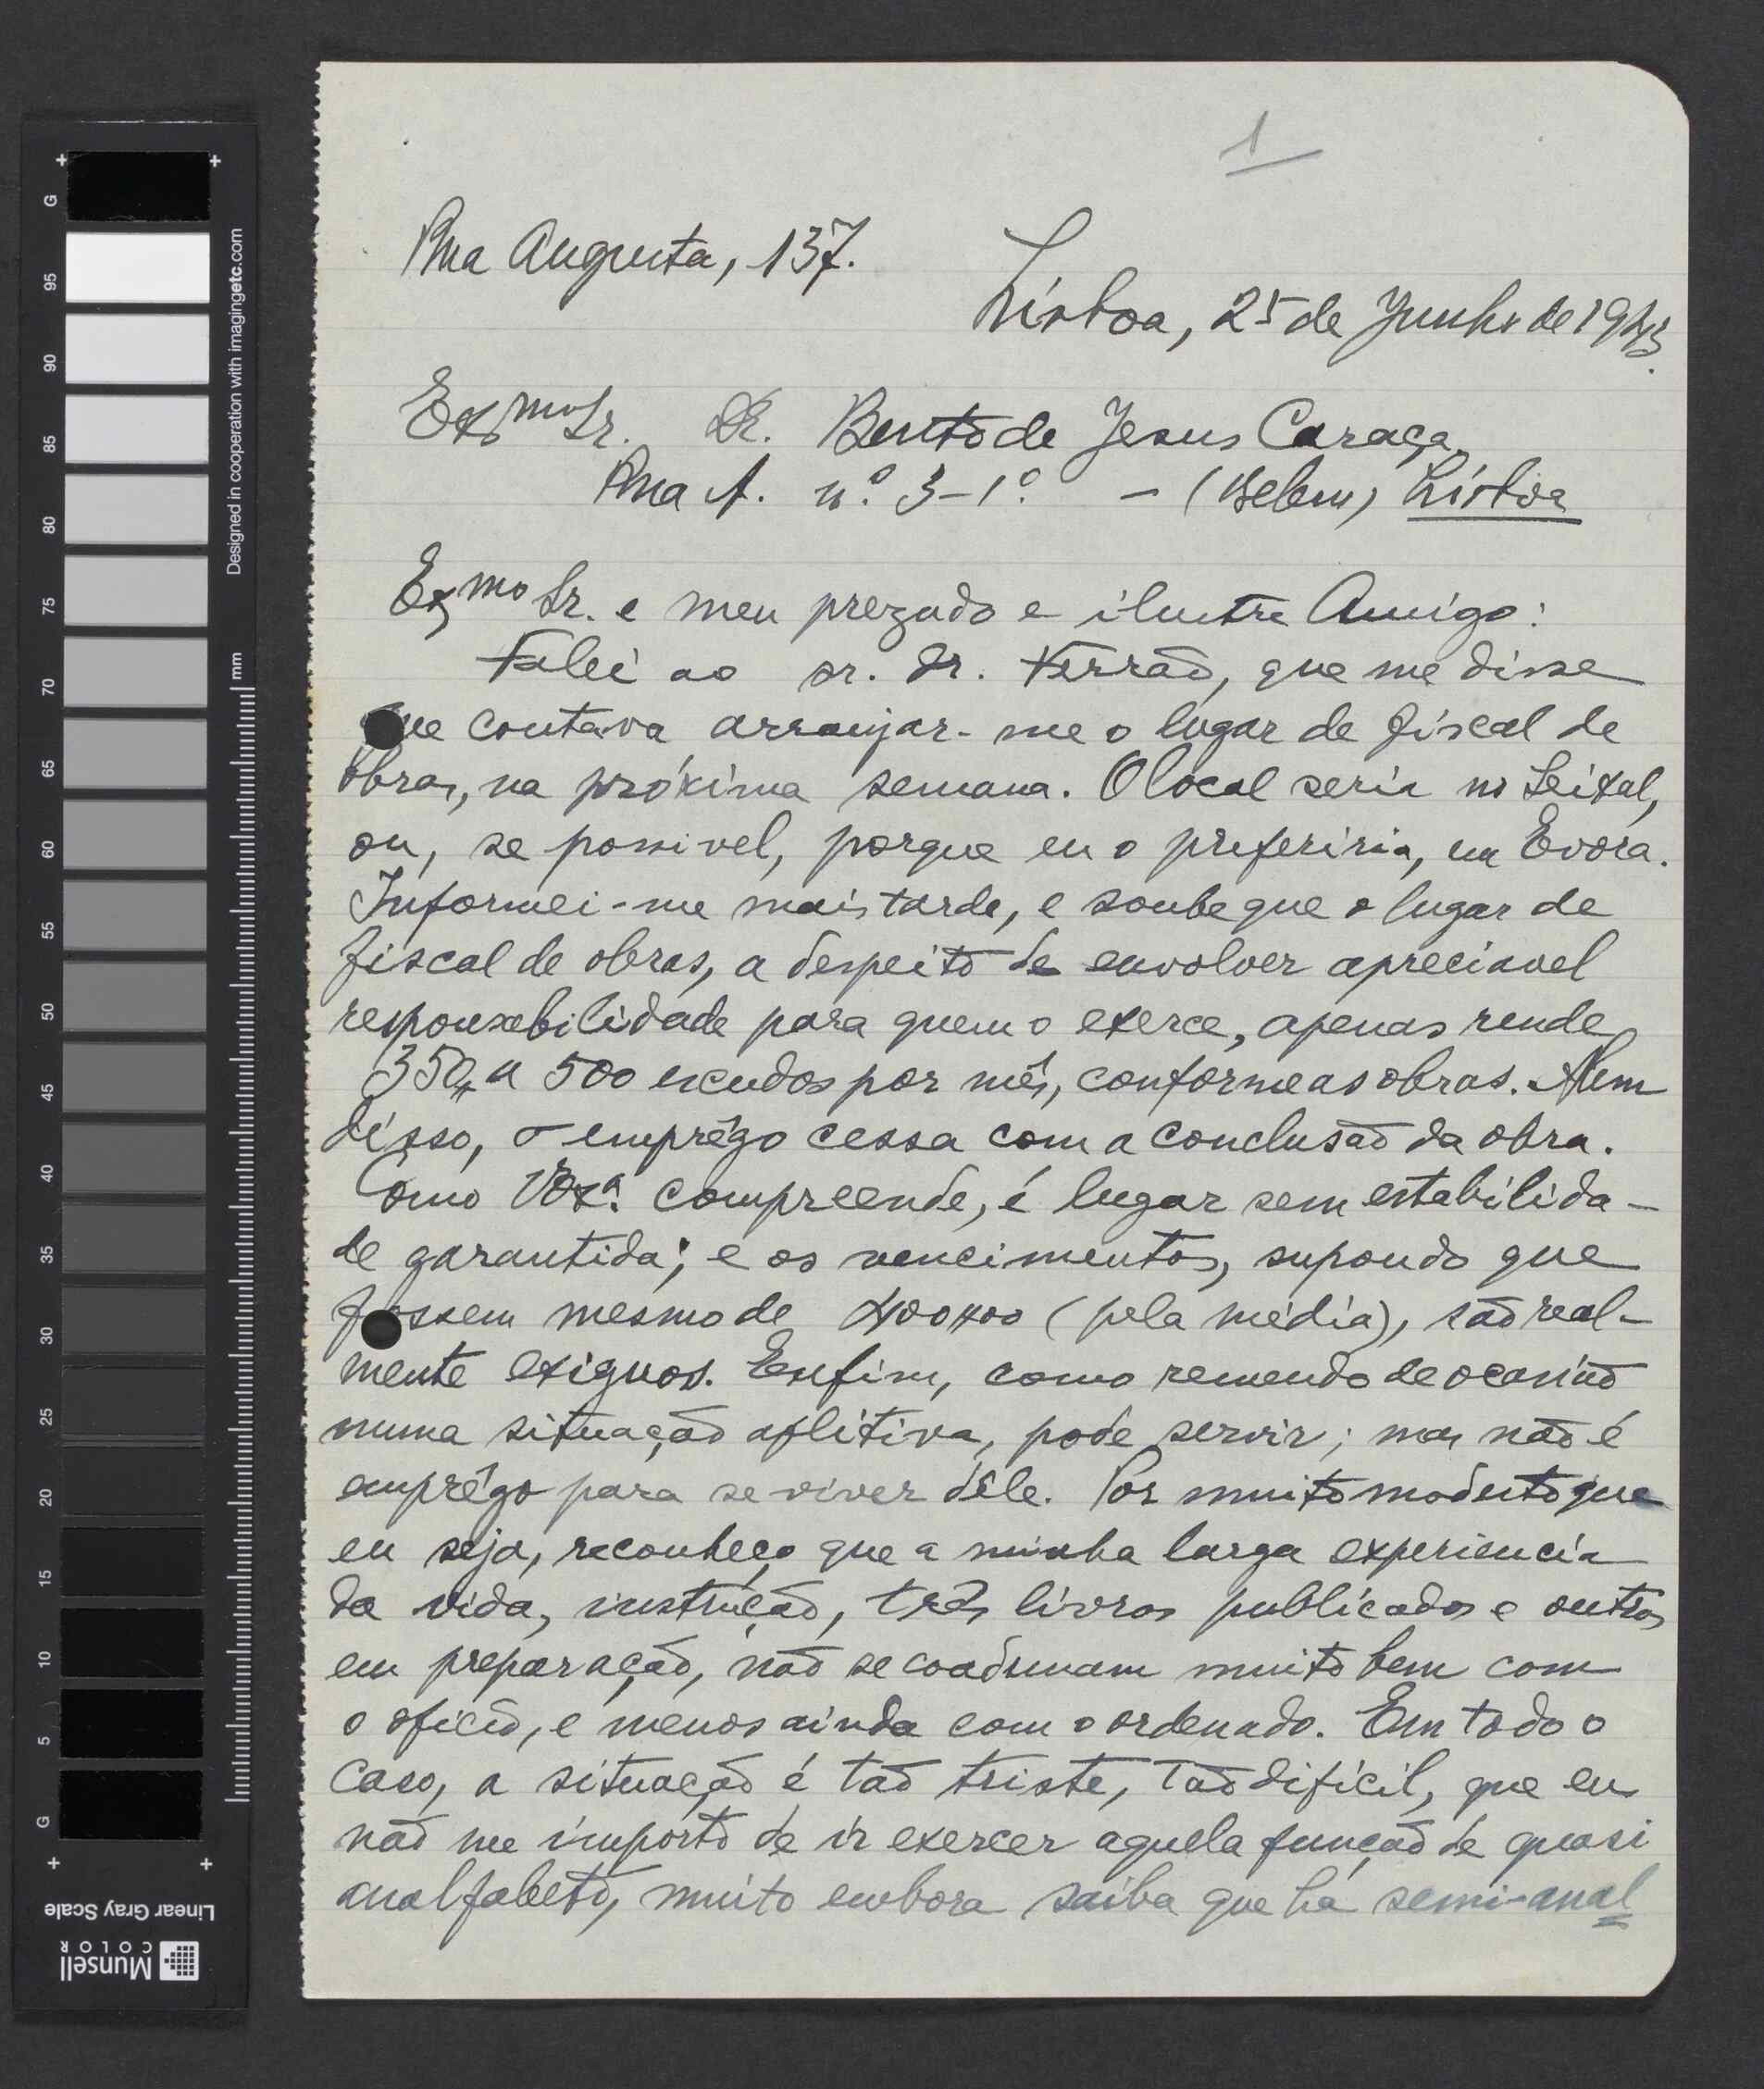 1
Rua Augusta, 137.
Lisboa, 25 de Junho de 1943.
Exmo Sr. Dr. Bento de Jesus Caraça,
Rua A. nº 3-1º - (Belem) Lisboa
Exmo Sr. e meu prezado e ilustre Amigo:
Falei ao sr. dr. Ferrão, que me disse
que contava arranjar-me o lugar de fiscal de
obras, na próxima semana. O local seria no Seixal,
ou, se possivel, porque eu o preferiria, em Evora.
Informei-me mais tarde, e soube que o lugar de
fiscal de obras, a despeito de envolver apreciavel
responsabilidade para quem o exerce, apenas rende
350, a 500 escudos por mês, conforme as obras. Alem
disso, o emprêgo cessa com a conclusão da obra.
Como V. Exª. compreende, é lugar sem estabilida-
de garantida; e os vencimentos, supondo que
fossem mesmo de 400$00 (pela média), são real-
mente exiguos. Enfim, como remendo de ocasião
numa situação aflitiva, pode servir; mas não é
emprêgo para se viver dêle. Por muito modesto que
eu seja, reconheço que a minha larga experiencia
da vida, instrução, três livros publicados e outros
em preparação, não se coadunam muito bem com
o ofício, e menos ainda com o ordenado. Em todo o
caso, a situação é tão triste, tão difícil, que eu
não me importo de ir exercer aquela função de quasi
analfabeto, muito embora saiba que há semi-anal
Designed in cooperation with imagingetc.com
mm
G 95 90 85 80 75 70 65 60 55 50 45 40 35 30 25 20 15 10 5 G
Linear Gray Scale
Munsell
COLOR